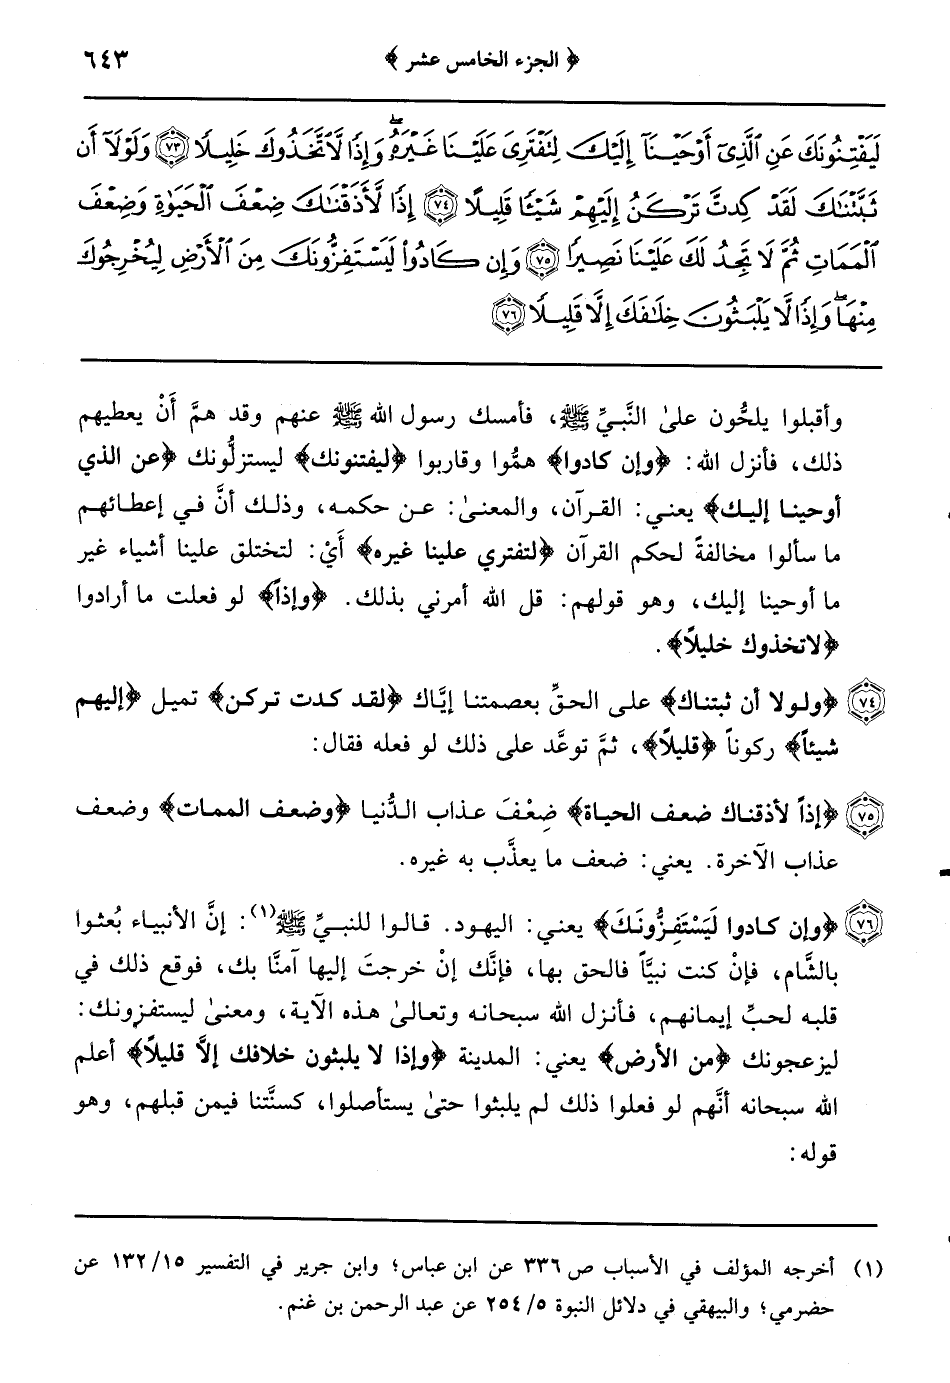 ﴿ الجزء الخامس عشر ﴾ ٦٤٣
لَيَفْتِنُونَكَ عَنِ ٱلَّذِىٓ أَوْحَيْنَآ إِلَيْكَ لِتَفْتَرِىَ عَلَيْنَا غَيْرَهُۥ ۖ وَإِذًا لَّٱتَّخَذُوكَ خَلِيلًا ﴿٧٣﴾ وَلَوْلَآ أَن
ثَبَّتْنَٰكَ لَقَدْ كِدتَّ تَرْكَنُ إِلَيْهِمْ شَيْـًٔا قَلِيلًا ﴿٧٤﴾ إِذًا لَّأَذَقْنَٰكَ ضِعْفَ ٱلْحَيَوٰةِ وَضِعْفَ
ٱلْمَمَاتِ ثُمَّ لَا تَجِدُ لَكَ عَلَيْنَا نَصِيرًا ﴿٧٥﴾ وَإِن كَادُوا۟ لَيَسْتَفِزُّونَكَ مِنَ ٱلْأَرْضِ لِيُخْرِجُوكَ
مِنْهَا ۖ وَإِذًا لَّا يَلْبَثُونَ خِلَٰفَكَ إِلَّا قَلِيلًا ﴿٧٦﴾
وأقبلوا يلحُّون علىٰ النَّبيِّ ﷺ، فأمسك رسول الله ﷺ عنهم وقد همَّ أَنْ يعطيهم
ذلك، فأنزل الله: ﴿وإن كادوا﴾ همُّوا وقاربوا ﴿ليفتنونك﴾ ليستزلُّونك ﴿عن الذي
أوحينا إليك﴾ يعني: القرآن، والمعنىٰ: عن حكمه، وذلك أنَّ في إعطائهم
ما سألوا مخالفةً لحكم القرآن ﴿لتفتري علينا غيره﴾ أَيْ: لتختلق علينا أشياء غير
ما أوحينا إليك، وهو قولهم: قل الله أمرني بذلك. ﴿وإذاً﴾ لو فعلت ما أرادوا
﴿لاتخذوك خليلاً﴾.
﴿٧٤﴾ ﴿ولولا أن ثبتناك﴾ على الحقِّ بعصمتنا إيَّاك ﴿لقد كدت تركن﴾ تميل ﴿إليهم
شيئاً﴾ ركوناً ﴿قليلاً﴾، ثمَّ توعَّد على ذلك لو فعله فقال:
﴿٧٥﴾ ﴿إذاً لأذقناك ضعف الحياة﴾ ضِعْفَ عذاب الدُّنيا ﴿وضعف الممات﴾ وضعف
عذاب الآخرة. يعني: ضعف ما يعذَّب به غيره.
﴿٧٦﴾ ﴿وإن كادوا لَيَسْتَفِزُّونَكَ﴾ يعني: اليهود. قالوا للنبيِّ ﷺ(١): إنَّ الأنبياء بُعثوا
بالشَّام، فإنْ كنت نبيَّاً فالحق بها، فإنَّك إنْ خرجتَ إليها آمنَّا بك، فوقع ذلك في
قلبه لحبِّ إيمانهم، فأنزل الله سبحانه وتعالىٰ هذه الآية، ومعنىٰ ليستفزونك:
ليزعجونك ﴿من الأرض﴾ يعني: المدينة ﴿وإذا لا يلبثون خلافك إلاَّ قليلاً﴾ أعلم
الله سبحانه أنَّهم لو فعلوا ذلك لم يلبثوا حتىٰ يستأصلوا، كسنَّتنا فيمن قبلهم، وهو
قوله:
(١) أخرجه المؤلف في الأسباب ص ٣٣٦ عن ابن عباس؛ وابن جرير في التفسير ١٥/ ١٣٢ عن
حضرمي؛ والبيهقي في دلائل النبوة ٥/ ٢٥٤ عن عبد الرحمن بن غنم.